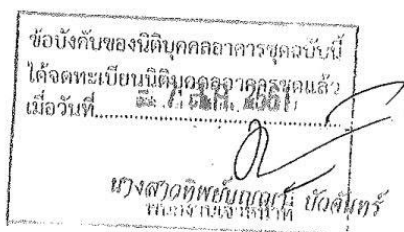 ข้อบังคับของนิติบุคคลอาคารชุดฉบับนี้
ได้จดทะเบียนนิติบุคคลอาคารชุดแล้ว
เมื่อวันที่
นางสาวทิพย์ บัวจันทร์
พนักงานเจ้าหน้าที่